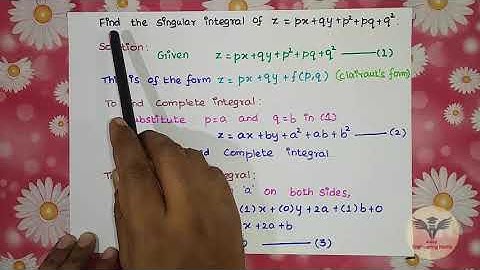 Find the singular integral of z = px + qy + p² + pq + q².
Solution:
Given z = px + qy + p² + pq + q² —— (1)
This is of the form z = px + qy + f(p,q) (clairaut's form)
To find complete integral:
substitute p=a and q=b in (1)
z = ax + by + a² + ab + b² —— (2)
nd complete integral
To
egral:
'a' on both sides,
(1)x + (0)y + 2a + (1)b + 0
x + 2a + b
0 —— (3)